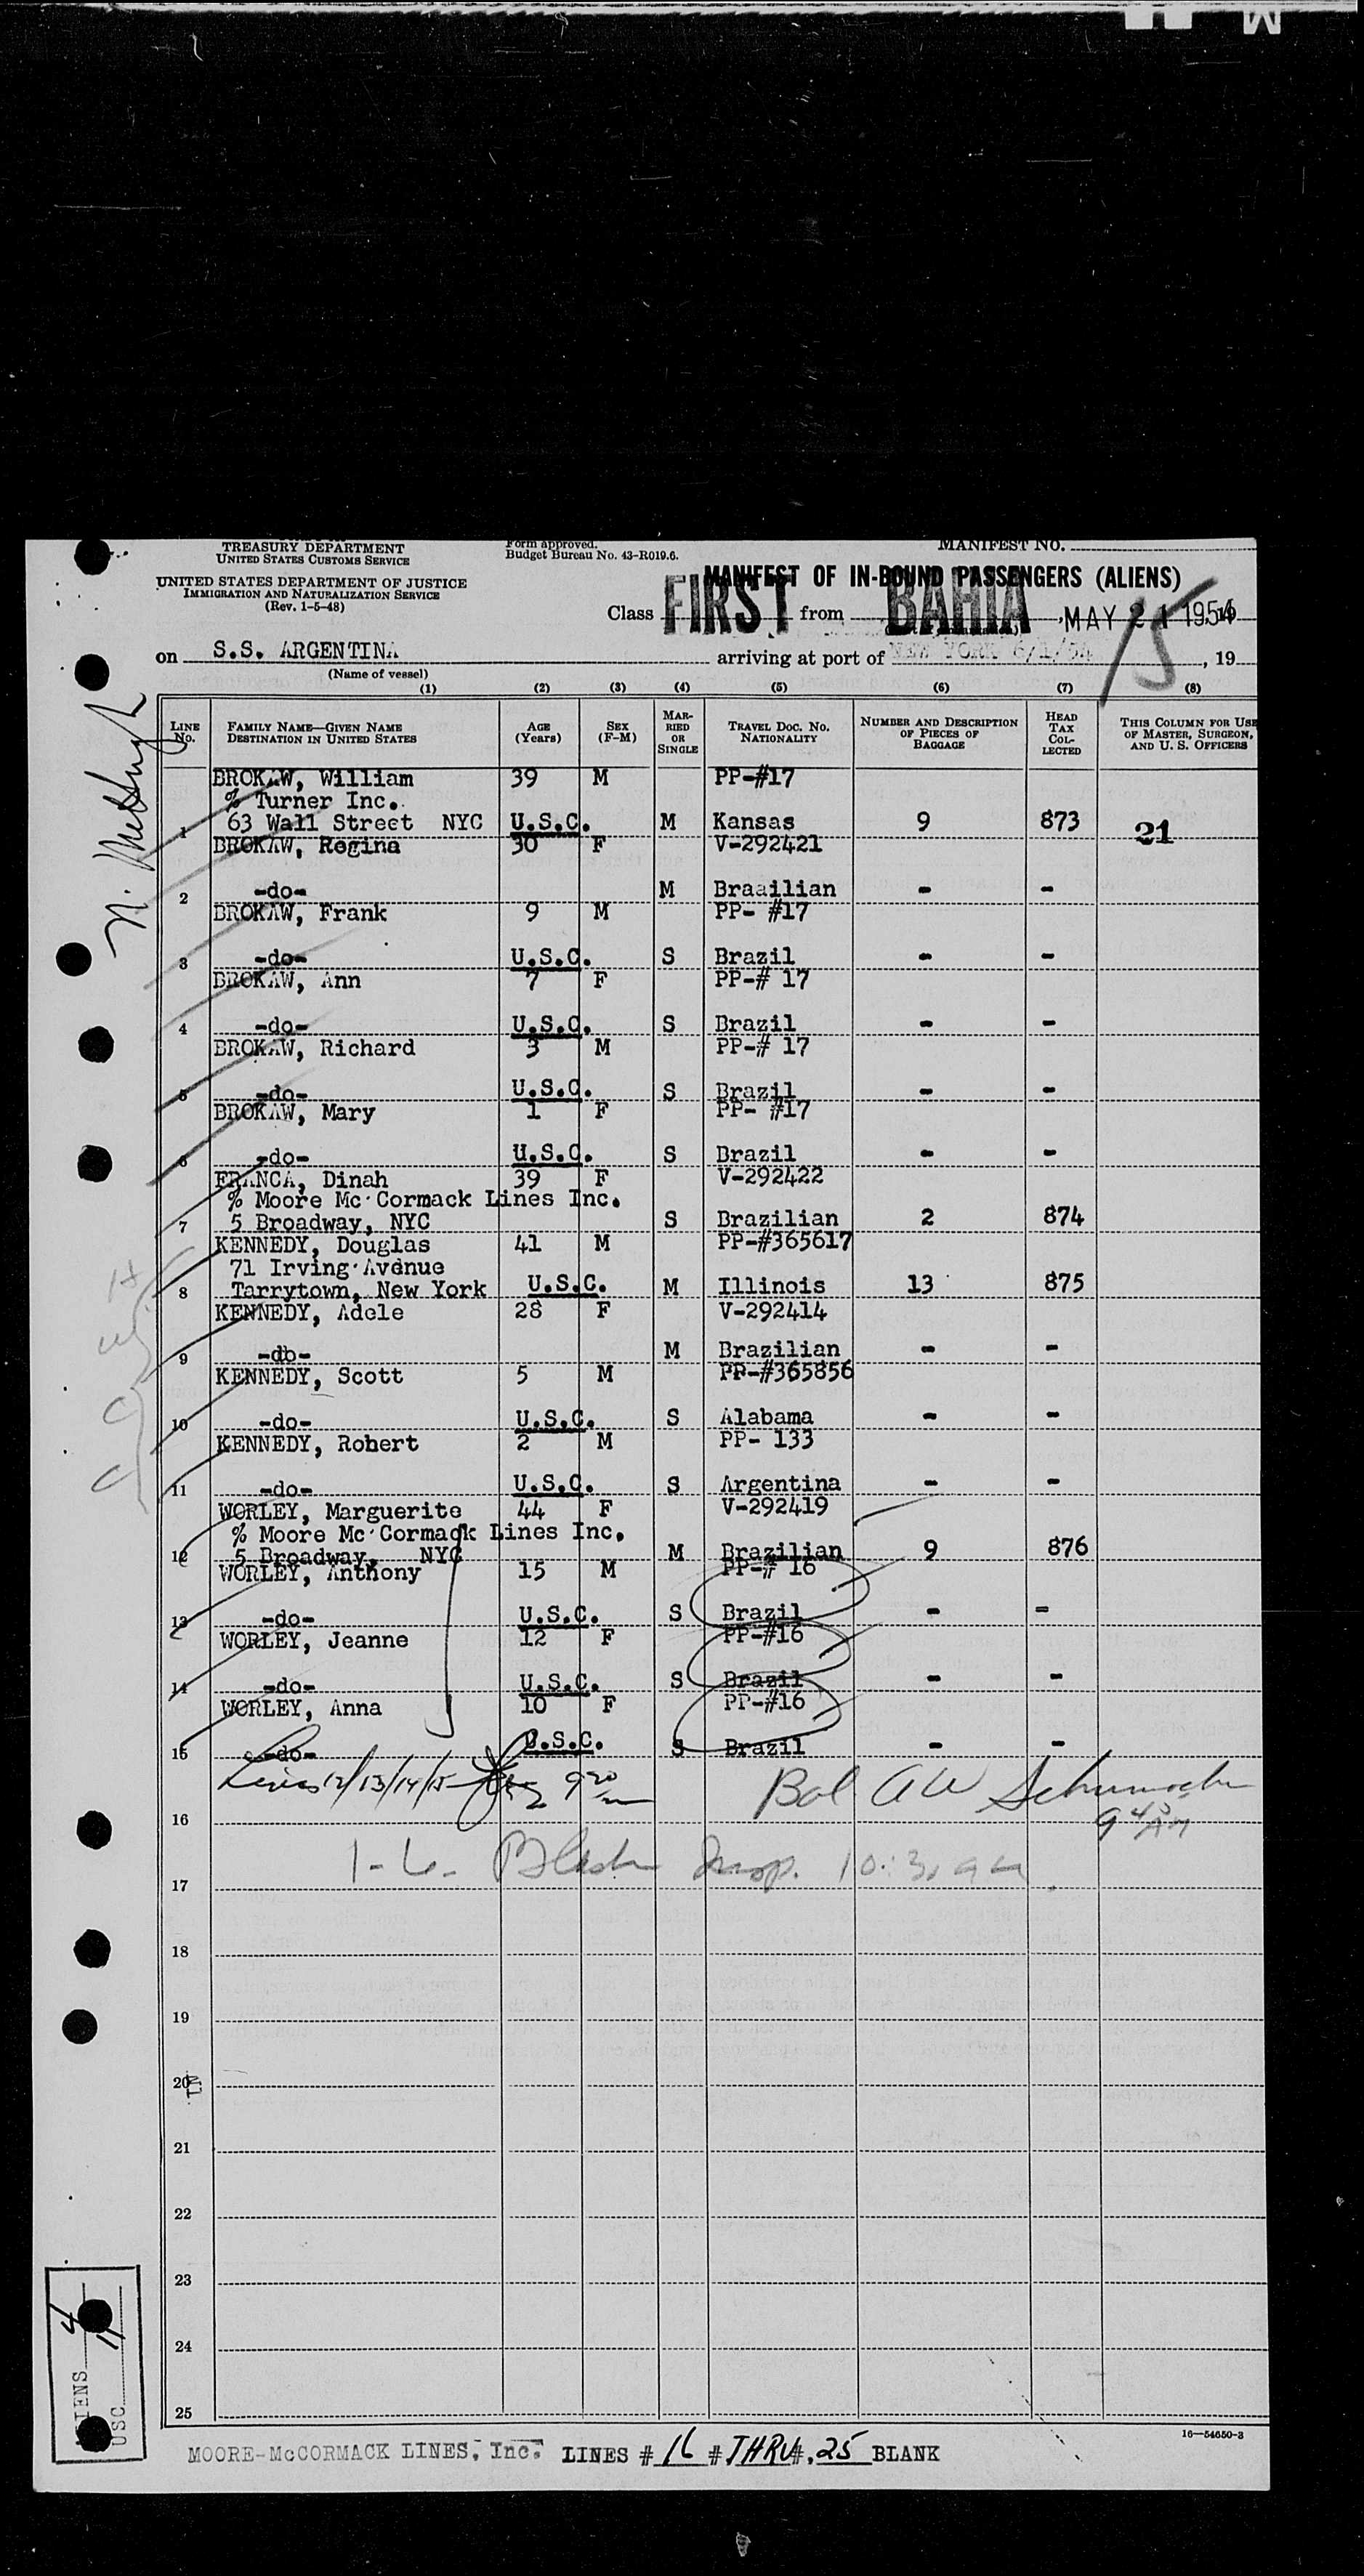 M
TREASURY DEPARTMENT
UNITED STATES CUSTOMS SERVICE
Form approved.
Budget Bureau No. 43-R019.6.
MANIFEST NO.
UNITED STATES DEPARTMENT OF JUSTICE
IMMIGRATION AND NATURALIZATION SERVICE
(Rev. 1-5-48)
MANIFEST OF IN-BOUND PASSENGERS (ALIENS)
Class FIRST from BAHIA, MAY 21 1954, 19
on S.S. ARGENTINA arriving at port of NEW YORK 6/1/54, 19
15
(Name of vessel)
(1) (2) (3) (4) (5) (6) (7) (8)
LINE No. FAMILY NAME—GIVEN NAME DESTINATION IN UNITED STATES AGE (Years) SEX (F-M) MARRIED OR SINGLE TRAVEL DOC. NO. NATIONALITY NUMBER AND DESCRIPTION OF PIECES OF BAGGAGE HEAD TAX COLLECTED THIS COLUMN FOR USE OF MASTER, SURGEON, AND U. S. OFFICERS
BROKAW, William 39 M PP-#17
% Turner Inc.
1 63 Wall Street NYC U.S.C. M Kansas 9 873 21
BROKAW, Regina 30 F V-292421
2 -do- M Braailian - -
BROKAW, Frank 9 M PP- #17
3 -do- U.S.C. S Brazil - -
BROKAW, Ann 7 F PP-# 17
4 -do- U.S.C. S Brazil - -
BROKAW, Richard 3 M PP-# 17
5 -do- U.S.C. S Brazil - -
BROKAW, Mary 1 F PP- #17
6 -do- U.S.C. S Brazil - -
FRANCA, Dinah 39 F V-292422
% Moore Mc Cormack Lines Inc.
7 5 Broadway, NYC S Brazilian 2 874
KENNEDY, Douglas 41 M PP-#365617
71 Irving Avenue
8 Tarrytown, New York U.S.C. M Illinois 13 875
KENNEDY, Adele 28 F V-292414
9 -do- M Brazilian - -
KENNEDY, Scott 5 M PP-#365856
10 -do- U.S.C. S Alabama - -
KENNEDY, Robert 2 M PP- 133
11 -do- U.S.C. S Argentina - -
WORLEY, Marguerite 44 F V-292419
% Moore Mc Cormack Lines Inc.
12 5 Broadway, NYC M Brazilian 9 876
WORLEY, Anthony 15 M PP-# 16
13 -do- U.S.C. S Brazil - -
WORLEY, Jeanne 12 F PP-#16
14 -do- U.S.C. S Brazil - -
WORLEY, Anna 10 F PP-#16
15 -do- U.S.C. S Brazil - -
Lines 12/13/14/15 9 30
Bal AW Schumacher
9 45 AM
16
1-6- Insp. 10:30 am
17
18
19
20
21
22
23
24
25
ALIENS 4
USC 11
16—54650-3
MOORE-McCORMACK LINES, Inc. LINES # 16 # THRU #, 25 BLANK